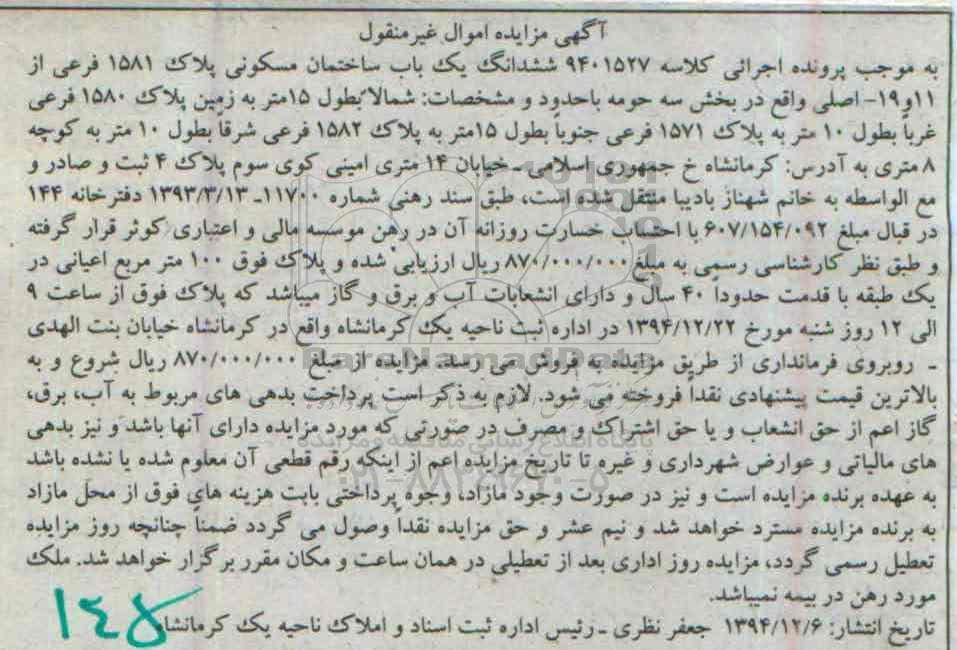 آگهی مزایده اموال غیرمنقول
به موجب پرونده اجرائی کلاسه ۹۴۰۱۵۲۷ ششدانگ یک باب ساختمان مسکونی پلاک ۱۵۸۱ فرعی از
۱۱و۱۹- اصلی واقع در بخش سه حومه باحدود و مشخصات: شمالاً بطول ۱۵متر به زمین پلاک ۱۵۸۰ فرعی
غرباً بطول ۱۰ متر به پلاک ۱۵۷۱ فرعی جنوباً بطول ۱۵متر به پلاک ۱۵۸۲ فرعی شرقاً بطول ۱۰ متر به کوچه
۸ متری به آدرس: کرمانشاه خ جمهوری اسلامی ـ خیابان ۱۴ متری امینی کوی سوم پلاک ۴ ثبت و صادر و
مع الواسطه به خانم شهناز بادیبا منتقل شده است، طبق سند رهنی شماره ۱۱۷۰۰ـ ۱۳۹۳/۳/۱۳ دفترخانه ۱۴۴
در قبال مبلغ ۶۰۷/۱۵۴/۰۹۲ با احتساب خسارت روزانه آن در رهن موسسه مالی و اعتباری کوثر قرار گرفته
و طبق نظر کارشناسی رسمی به مبلغ ۸۷۰/۰۰۰/۰۰۰ ریال ارزیابی شده و پلاک فوق ۱۰۰ متر مربع اعیانی در
یک طبقه با قدمت حدوداً ۴۰ سال و دارای انشعابات آب و برق و گاز میباشد که پلاک فوق از ساعت ۹
الی ۱۲ روز شنبه مورخ ۱۳۹۴/۱۲/۲۲ در اداره ثبت ناحیه یک کرمانشاه واقع در کرمانشاه خیابان بنت الهدی
ـ روبروی فرمانداری از طریق مزایده به فروش می رسد. مزایده از مبلغ ۸۷۰/۰۰۰/۰۰۰ ریال شروع و به
بالاترین قیمت پیشنهادی نقداً فروخته می شود. لازم به ذکر است پرداخت بدهی های مربوط به آب، برق،
گاز اعم از حق انشعاب و یا حق اشتراک و مصرف در صورتی که مورد مزایده دارای آنها باشد و نیز بدهی
های مالیاتی و عوارض شهرداری و غیره تا تاریخ مزایده اعم از اینکه رقم قطعی آن معلوم شده یا نشده باشد
به عهده برنده مزایده است و نیز در صورت وجود مازاد، وجوه پرداختی بابت هزینه های فوق از محل مازاد
به برنده مزایده مسترد خواهد شد و نیم عشر و حق مزایده نقداً وصول می گردد ضمناً چنانچه روز مزایده
تعطیل رسمی گردد، مزایده روز اداری بعد از تعطیلی در همان ساعت و مکان مقرر برگزار خواهد شد. ملک
مورد رهن در بیمه نمیباشد.
تاریخ انتشار: ۱۳۹۴/۱۲/۶ جعفر نظری ـ رئیس اداره ثبت اسناد و املاک ناحیه یک کرمانشاه
ParsNamadData
پایگاه اطلاع رسانی مناقصه و مزایده
۰۲۱-۸۸۳۴۹۶۷۰-۵